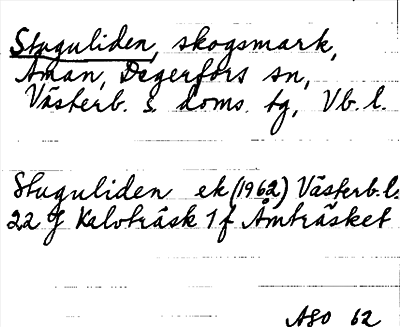 Stuguliden, skogsmark,
Åman, Degerfors sn,
Västerb. s. doms. tg, Vb. l.
Stuguliden ek (1962) Västerb. l.
22 J Kalvträsk 1 f Åmträsket
ASO 62